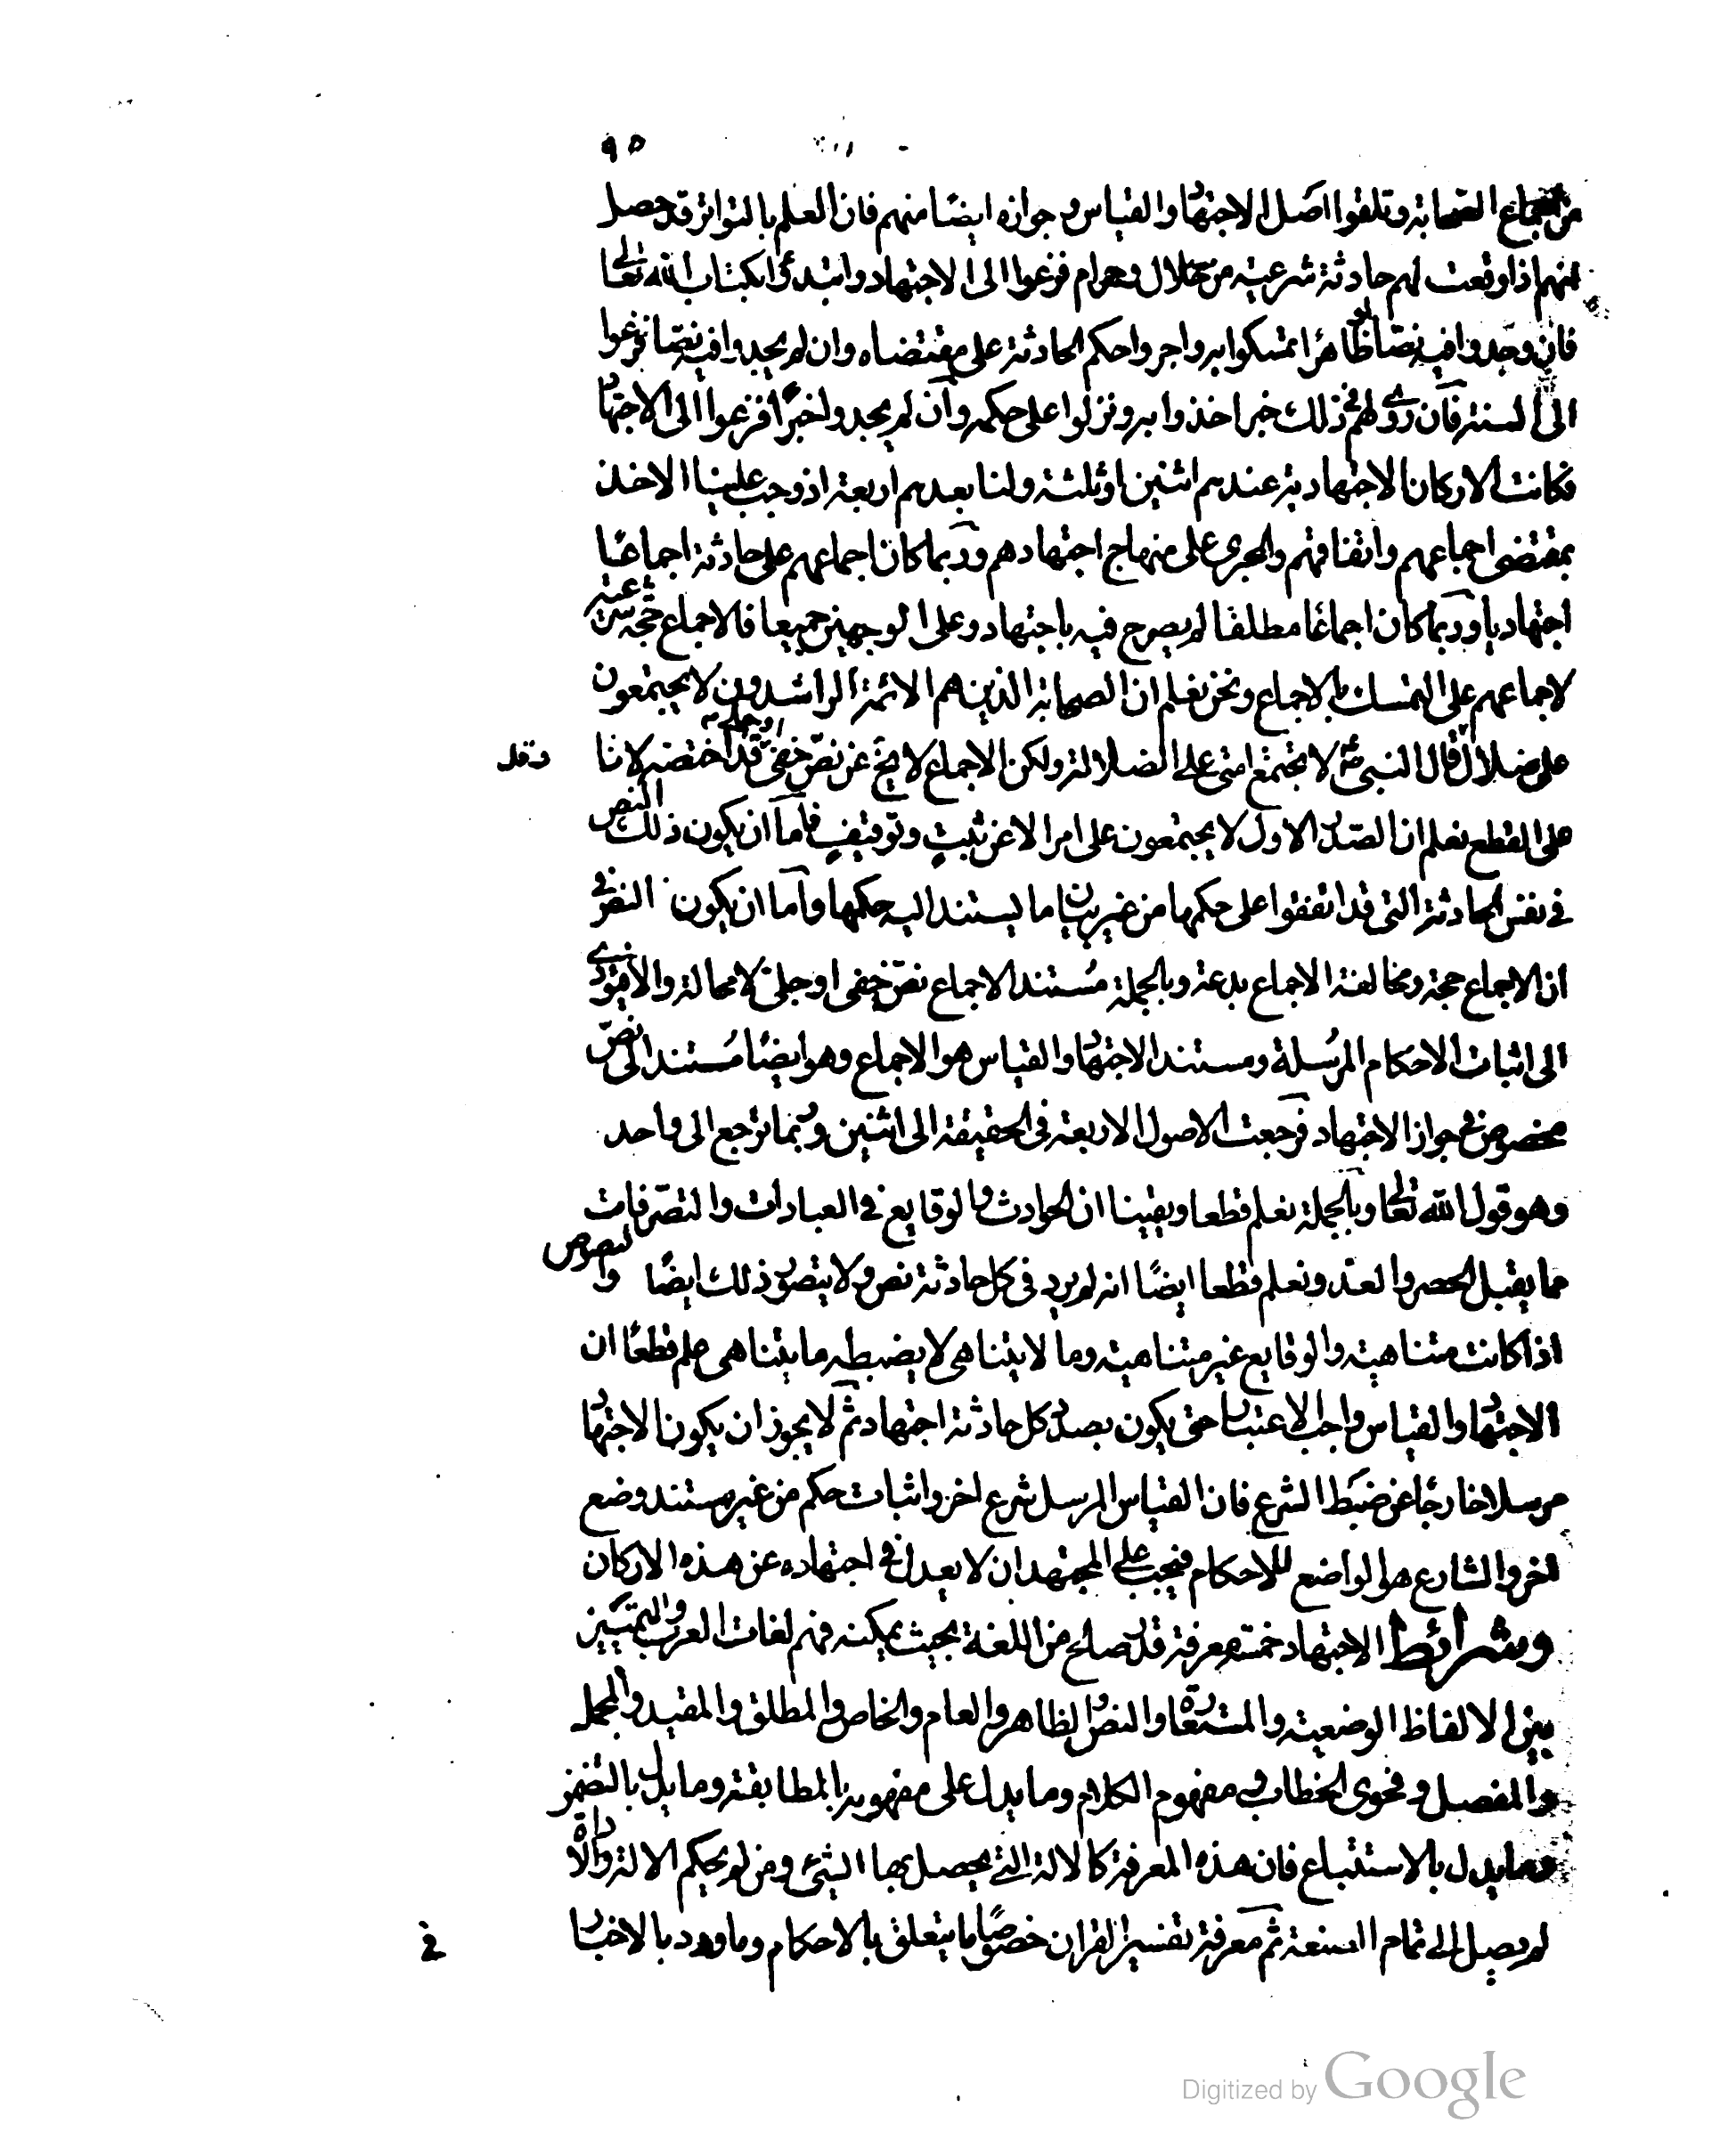 ٩٥
من اجماع الصحابة وتلقوا اصل الاجتهاد والقياس وجوازه ايضا منهم فان العلم بالتواتر قد حصل
انهم اذا وقعت لهم حادثة شرعية من حلال وحرام فزعوا الى الاجتهاد وابتدؤا بكتاب الله تعالى
فان وجدوا فيه نصا او ظاهرا تمسكوا به واجروا حكم الحادثة على مقتضاه وان لم يجدوا فيه نصا فزعوا
الى السنة فان روى لهم فى ذلك خبر اخذوا به ونزلوا على حكمه وان لم يجدوا خبرا فزعوا الى الاجتهاد
فكانت الاركان الاجتهادية عندهم اثنين او ثلثة ولنا بعدهم اربعة اذ وجب علينا الاخذ
بمقتضى اجماعهم واتفاقهم والجرى على منهاج اجتهادهم وربما كان اجماعهم على حادثة اجماعا
اجتهاديا وربما كان اجماعا مطلقا لم يصرح فيه باجتهاد وعلى الوجهين جميعا فالاجماع حجة شرعية
لاجماعهم على التمسك بالاجماع ونحن نعلم ان الصحابة الذين هم الائمة الراشدون لا يجتمعون
على ضلال وقد قال النبى صلعم لا تجتمع امتى على الضلالة ولكن الاجماع لا يخ عن نص خفى او جلى قد اختصه لانا
على القطع نعلم ان الصدر الاول لا يجتمعون على امر الا عن تثبت وتوقيف فاما ان يكون ذلك النص
فى نفس الحادثة التى قد اتفقوا على حكمها من غير بيان ما يستند اليه حكمها واما ان يكون النص فى
ان الاجماع حجة ومخالفة الاجماع بدعة وبالجملة مستند الاجماع نص خفى او جلى لا محالة والا فيودى
الى اثبات الاحكام المرسلة ومستند الاجتهاد والقياس هو الاجماع وهو ايضا مستند الى نص
مخصوص فى جواز الاجتهاد فرجعت الاصول الاربعة فى الحقيقة الى اثنين وربما ترجع الى واحد
وهو قول الله تعالى وبالجملة نعلم قطعا ويقينا ان الحوادث والوقايع فى العبادات والتصرفات
مما يقبل الحصر والعد ونعلم قطعا ايضا انه لم يرد فى كل حادثة نص ولا يتصور ذلك ايضا والنصوص
اذا كانت متناهية والوقايع غير متناهية وما لا يتناهى لا يضبطه ما يتناهى علم قطعا ان
الاجتهاد والقياس واجب الاعتبار حتى يكون بصدد كل حادثة اجتهاد ثم لا يجوز ان يكون الاجتهاد
مرسلا خارجا عن ضبط الشرع فان القياس المرسل شرع اخر واثبات حكم من غير مستند وضع
اخر والشارع هو الواضع للاحكام فيجب على المجتهد ان لا يعدل فى اجتهاده عن هذه الاركان
وشرائط الاجتهاد خمسة معرفة قدر صالح من اللغة بحيث يمكنه فهم لغات العرب والتمييز
بين الالفاظ الوضعية والمستعارة والنص والظاهر والعام والخاص والمطلق والمقيد والمجمل
والمفصل وفحوى الخطاب ومفهوم الكلام وما يدل على مفهومه بالمطابقة وما يدل بالتضمن
وما يدل بالاستتباع فان هذه المعرفة كالالة التى يحصل بها الشئ ومن لم يحكم الالة والاداة
لم يصل الى تمام الصنعة ثم معرفة تفسير القران خصوصا ما يتعلق بالاحكام وما ورد بالاخبار
فى